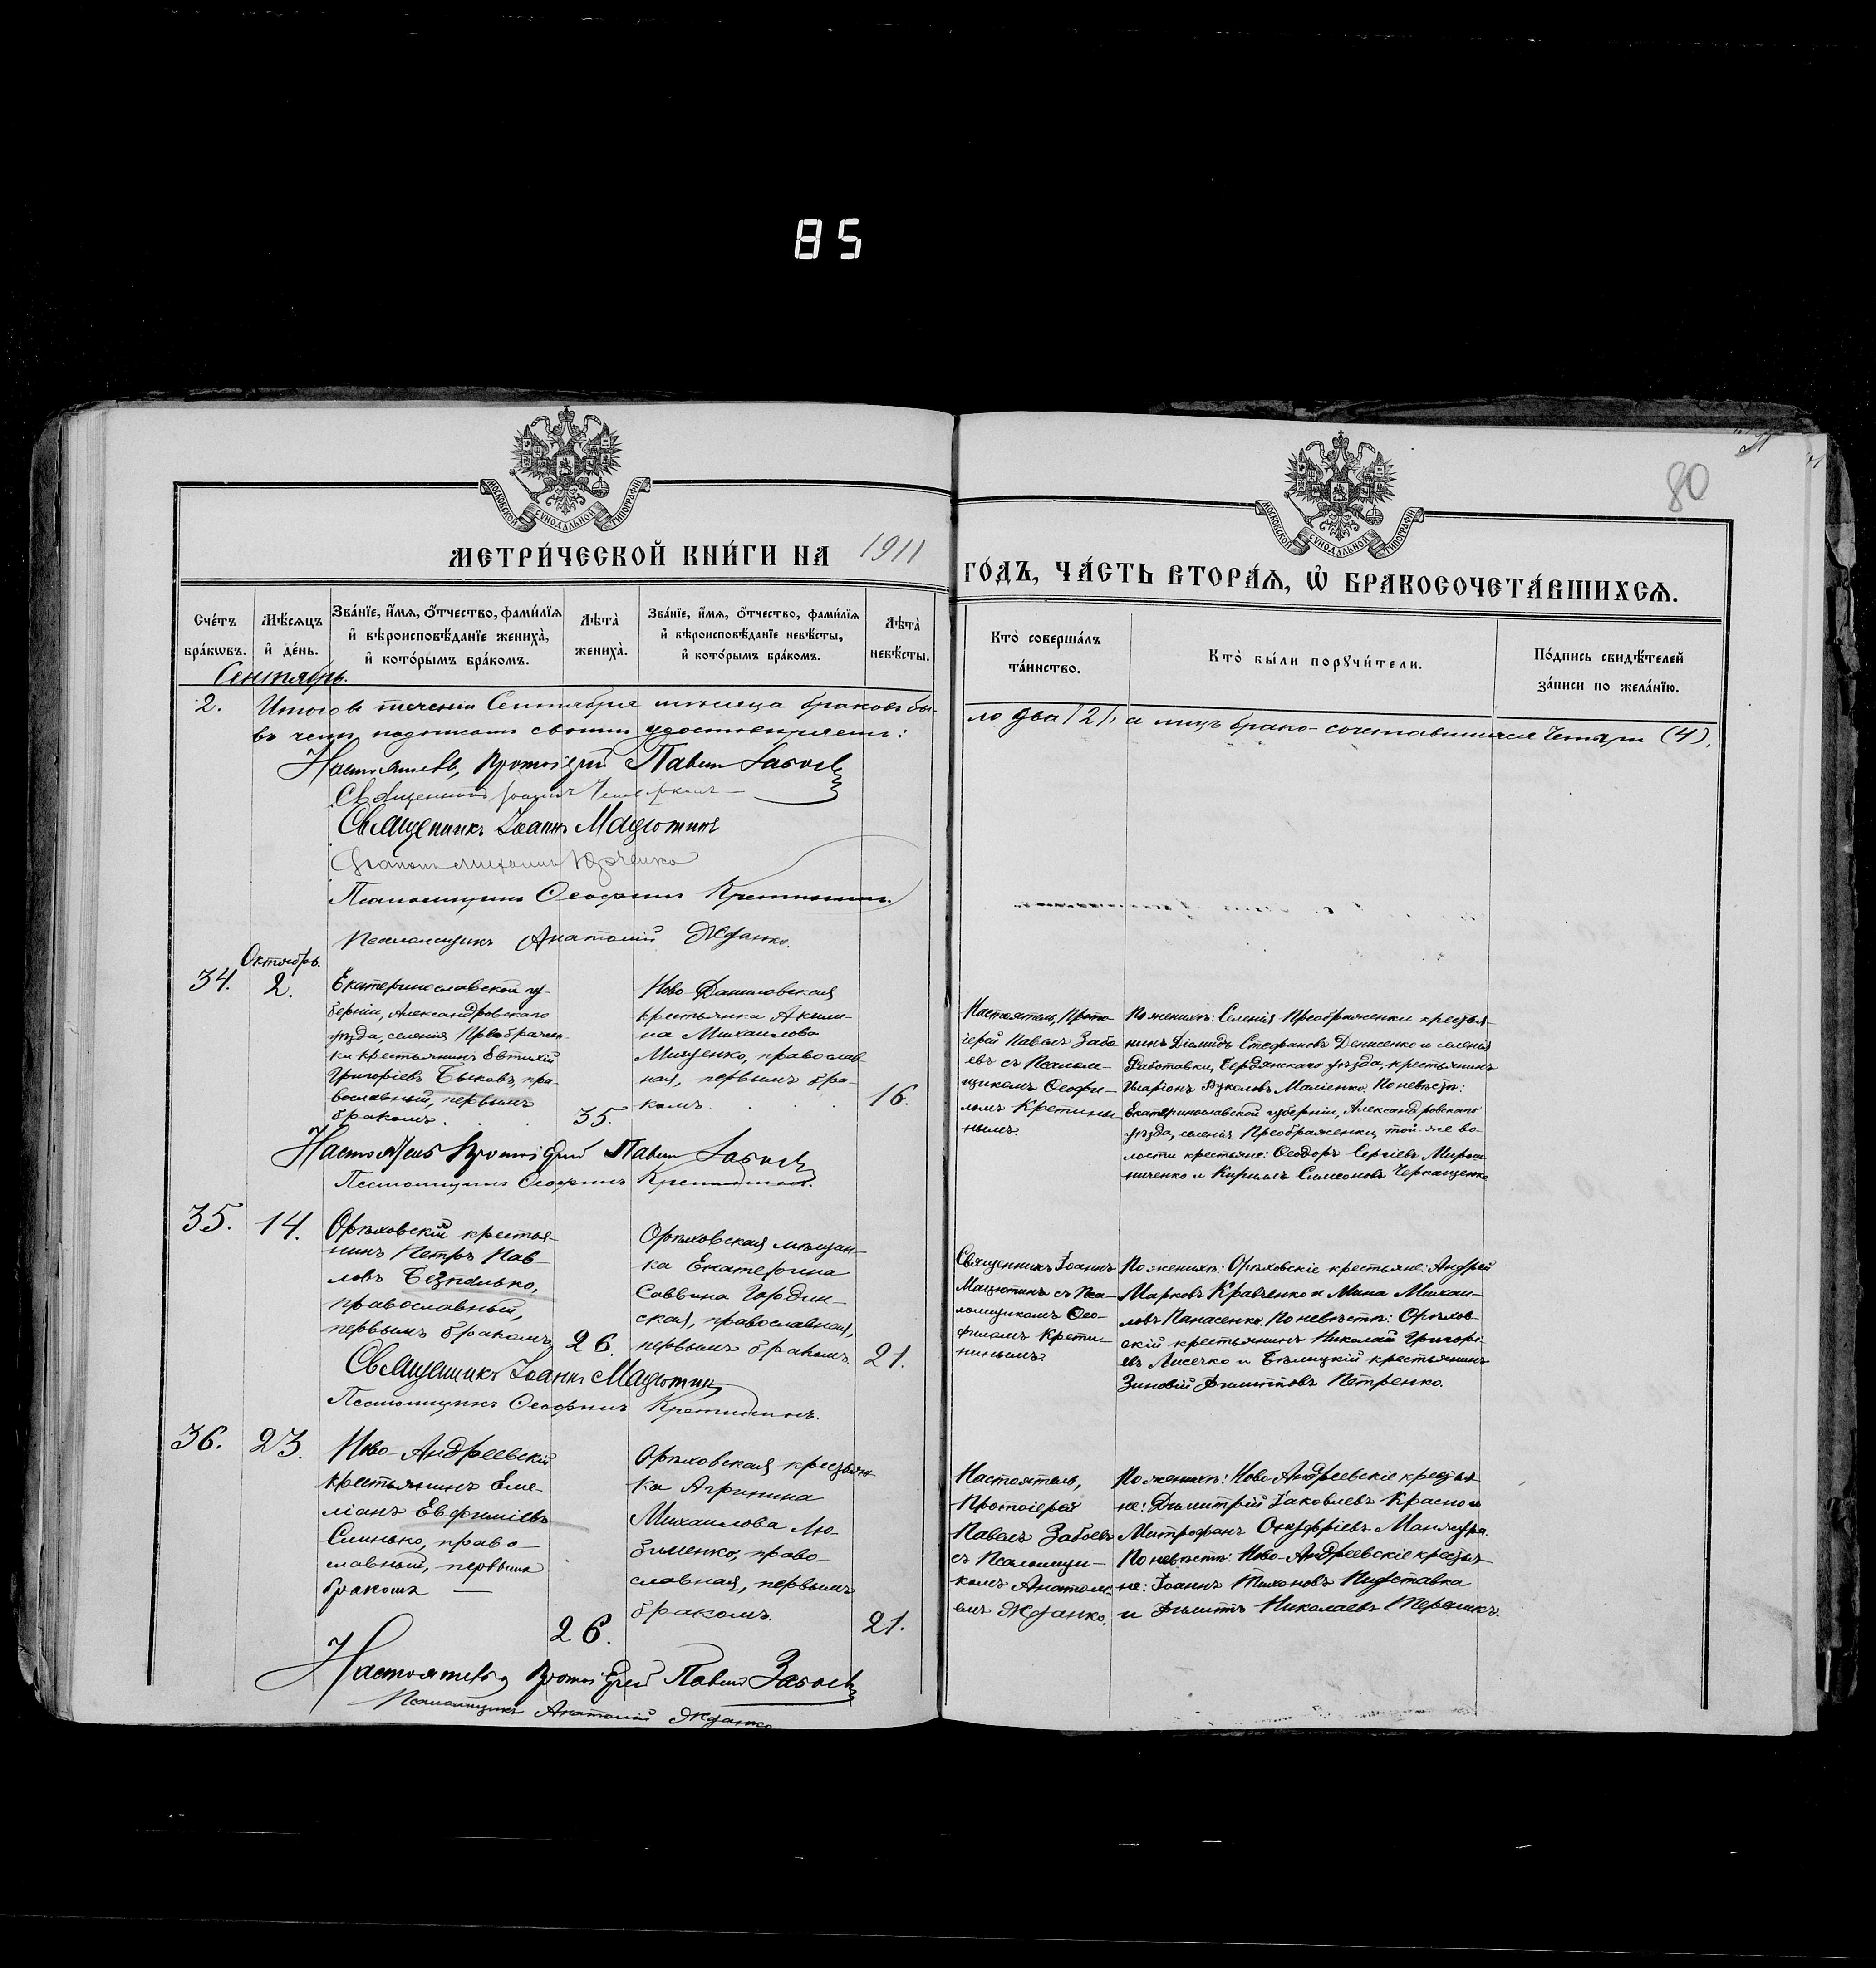 85
80
МОСКОВСКОЙ СУНОДАЛЬНОЙ ТИПОГРАФІИ
МОСКОВСКОЙ СУНОДАЛЬНОЙ ТИПОГРАФІИ
МЕТРИ́ЧЕСКОЙ КНИ́ГИ НА 1911
ГО́ДЪ, ЧА́СТЬ ВТОРА́Ѧ, Ѡ҆ БРАКОСОЧЕТА́ВШИХСѦ.
Сче́тъ бра́кѡвъ.
Мѣ́сяцъ и҆ де́нь.
Зва́нїе, и҆́мѧ, ѻ҆́тчество, фами́лїѧ и҆ вѣроисповѣ́данїе жениха̀, и҆ кото́рымъ бра́комъ.
Лѣта̀ жениха̀.
Зва́нїе, и҆́мѧ, ѻ҆́тчество, фами́лїѧ и҆ вѣроисповѣ́данїе невѣ́сты, и҆ кото́рымъ бра́комъ.
Лѣта̀ невѣ́сты.
Кто̀ соверша́лъ та́инство.
Кто̀ бы́ли порꙋчи́тели.
По́дпись свидѣ́телей за́писи по жела́нїю.
Сентябрь.
2. Итого въ теченіи Сентября мѣсяца браковъ бы-
ло два (2), а лицъ брако-сочетавшихся четыре (4),
въ чемъ подписомъ своимъ удостовѣряемъ:
Настоятель, Протоіерей Павелъ Забоевъ
Священникъ Іоаннъ
Священникъ Іоаннъ Мацютинъ
Діаконъ Михаилъ Юрченко
Псаломщикъ Ѳеофилъ Кретининъ.
Псаломщикъ Анатолій Жданко.
Октябрь.
34.
2.
Екатеринославской гу-
берніи, Александровскаго
уѣзда, селенія Преображен-
ки крестьянинъ Евтихій
Григоріевъ Быковъ, пра-
вославный, первымъ
бракомъ.
35.
Ново-Даниловская
крестьянка Акили-
на Михаилова
Мищенко, православ-
ная, первымъ бра-
комъ.
16.
Настоятель, Прото-
іерей Павелъ Забо-
евъ съ Псалом-
щикомъ Ѳеофи-
ломъ Кретини-
нымъ.
По женихѣ: Селенія Преображенки крестья-
нинъ Діомидъ Стефановъ Денисенко и селенія
Работавки, Бердянскаго уѣзда, крестьянинъ
Иларіонъ Вуколовъ Маліенко. По невѣстѣ:
Екатеринославской губерніи, Александровскаго
уѣзда, селенія Преображенки, той-же во-
лости крестьяне: Ѳеодоръ Сергіевъ Мирош-
ниченко и Кириллъ Симеоновъ Черкащенко
Настоятель Протоіерей Павелъ Забоевъ
Псаломщикъ Ѳеофилъ Кретининъ.
35.
14.
Орѣховскій крестья-
нинъ Петръ Пав-
ловъ Безпалько,
православный,
первымъ бракомъ,
26.
Орѣховская мѣщан-
ка Екатерина
Саввина Гордин-
ская, православная,
первымъ бракомъ.
21.
Священникъ Іоаннъ
Мацютинъ съ Пса-
ломщикомъ Ѳео-
филомъ Крети-
нинымъ.
По женихѣ: Орѣховскіе крестьяне: Андрей
Марковъ Кравченко и Мина Михаи-
ловъ Панасенко. По невѣстѣ: Орѣхов-
скій крестьянинъ Николай Григорі-
евъ Лисечко и Бѣлицкій крестьянинъ
Зиновій Филипповъ Петренко.
Священникъ Іоаннъ Мацютинъ
Псаломщикъ Ѳеофилъ Кретининъ.
36.
23.
Ново-Андреевскій
крестьянинъ Еме-
ліанъ Евфиміевъ
Слинько, право-
славный, первымъ
бракомъ —
26.
Орѣховская крестьян-
ка Агрипина
Михаилова Лю-
зименко, право-
славная, первымъ
бракомъ.
21.
Настоятель,
Протоіерей
Павелъ Забоевъ
съ Псаломщи-
комъ Анатолі-
емъ Жданко.
По женихѣ: Ново-Андреевскіе крестья-
не: Димитрій Іаковлевъ Красно и
Митрофанъ Онуфріевъ Манжура.
По невѣстѣ: Ново-Андреевскіе крестья-
не: Іоаннъ Тихоновъ Пидставка
и Филиппъ Николаевъ Терещкъ.
Настоятель Протоіерей Павелъ Забоевъ
Псаломщикъ Анатолій Жданко